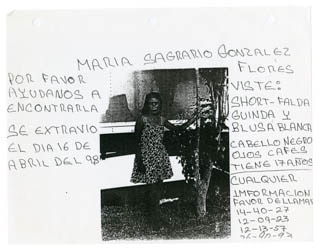 MARIA SAGRARIO GONZALEZ
FLORES
POR FAVOR
AYUDANOS A
ENCONTRARLA
SE EXTRAVIO
EL DIA 16 DE
ABRIL DEL 98
VISTE:
SHORT-FALDA
GUINDA Y
BLUSA BLANCA
CABELLO NEGRO
OJOS CAFES
TIENE 17 AÑOS
CUALQUIER
INFORMACION
FAVOR DE LLAMAR
14-40-27
12-09-23
12-13-57